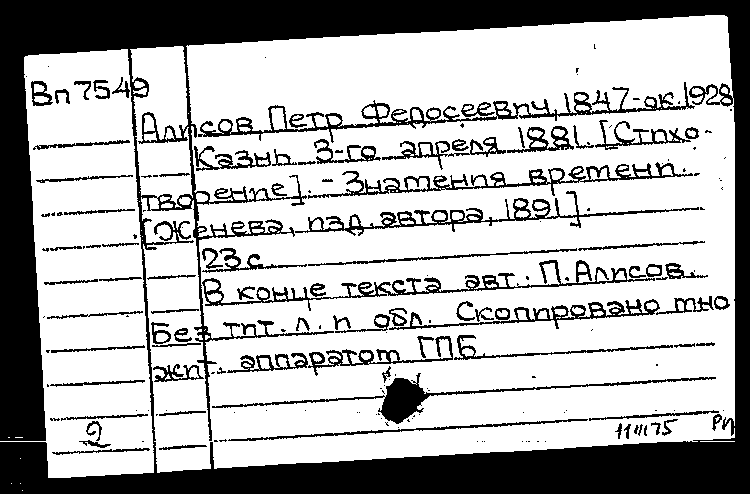 Вп 7549
Алисов, Петр Федосеевич, 1847-ок.1928
Казнь 3-го апреля 1881. [Стихо-
творение]. - Знамения времени.
[Женева, изд. автора, 1891].
23 с.
В конце текста авт.: П. Алисов.
Без тит. л. и обл. Скопировано мно
жит. аппаратом ГПБ.
2